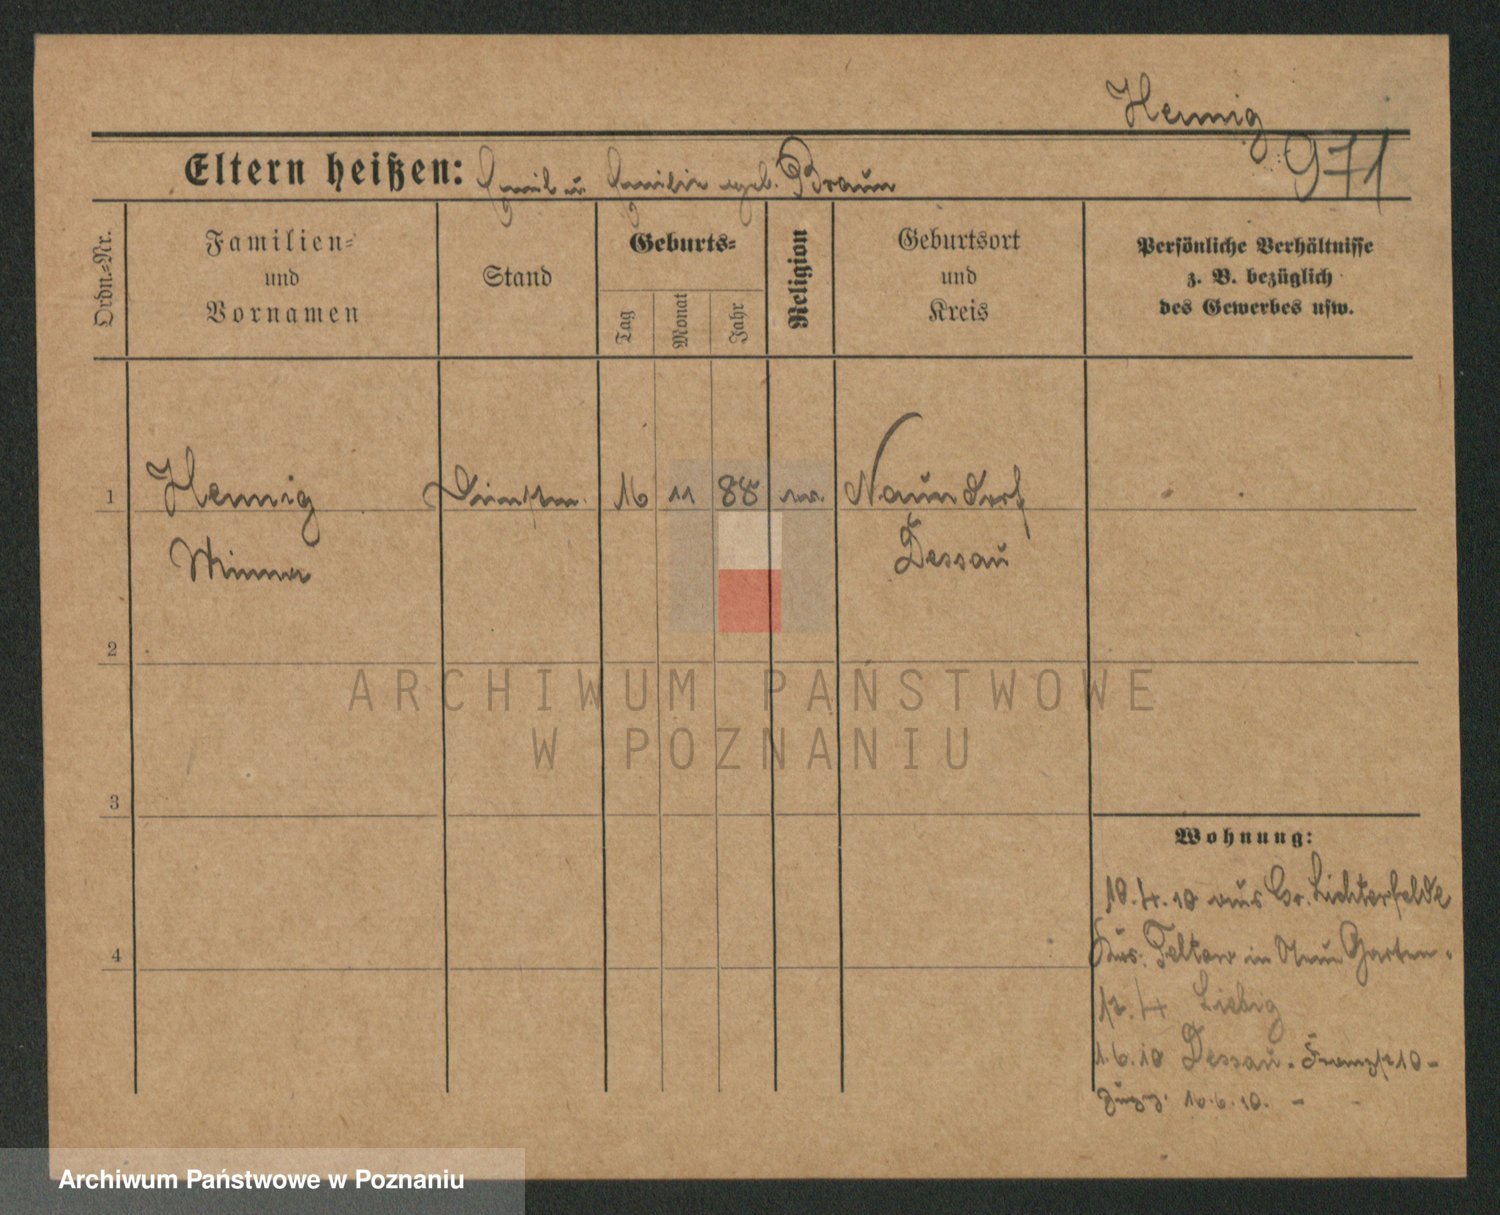 Hennig
971
Eltern heißen: Emil u. Emilie geb. Braun
Ordn.=Nr.
Familien=
und
Vornamen
Stand
Geburts=
Tag
Monat
Jahr
Religion
Geburtsort
und
Kreis
Persönliche Verhältnisse
z. B. bezüglich
des Gewerbes usw.
1 Hennig 16 11 88 Naundorf
Minna Dessau
2
3
4
Wohnung:
19.4.10 aus Gr. Lichterfelde
Teltow in Garten
12.4 Liebig
1.6.10 Dessau
10.6.10. -
ARCHIWUM PAŃSTWOWE
W POZNANIU
Archiwum Państwowe w Poznaniu